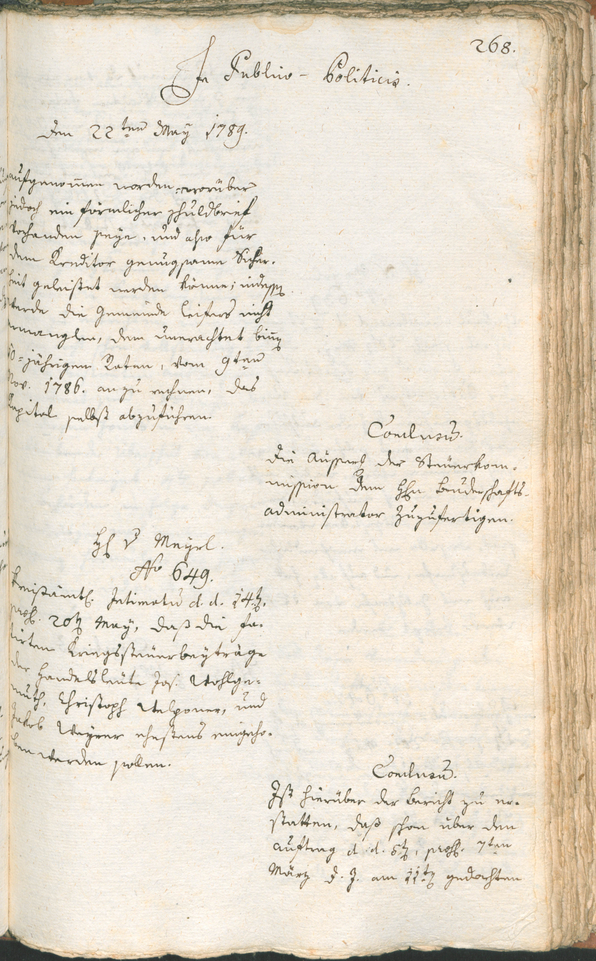 268.
In Publico-Politicis.
Den 22ten May 1789.
aufgenommen worden, worüber
jedoch ein förmlicher Schuldbrief
vorhanden seye, und also für
den Kreditor genugsame Sicher-
heit geleistet werden könne; indessen
werde die Gemeinde Leifers nicht
ermanglen, dem unerachtet binnen
10-jährigen Raten, vom 9ten
Nov. 1786. an zu rechnen, das
Kapital selbst abzuführen.
Conclusum.
Die Aussag der Steuerkom-
mission dem Hhn Baudschafts-
administrator zuzufertigen.
Hl v Mayrl.
No 649.
Kreisämtl. Intimatum d. d. 14t.
pras. 20t May, daß die fa-
tirten Kriegssteuerbeyträge
der Handelsleute Jos. Wohlge-
muth, Christoph Walponer, und
Jakob Mayrer ehestens eingeho-
ben werden sollen.
Conclusum.
Ist hierüber der Bericht zu er-
statten, daß schon über den
Auftrag d. d. 5t, pras. 7ten
März d. J. am 11ten gedachten